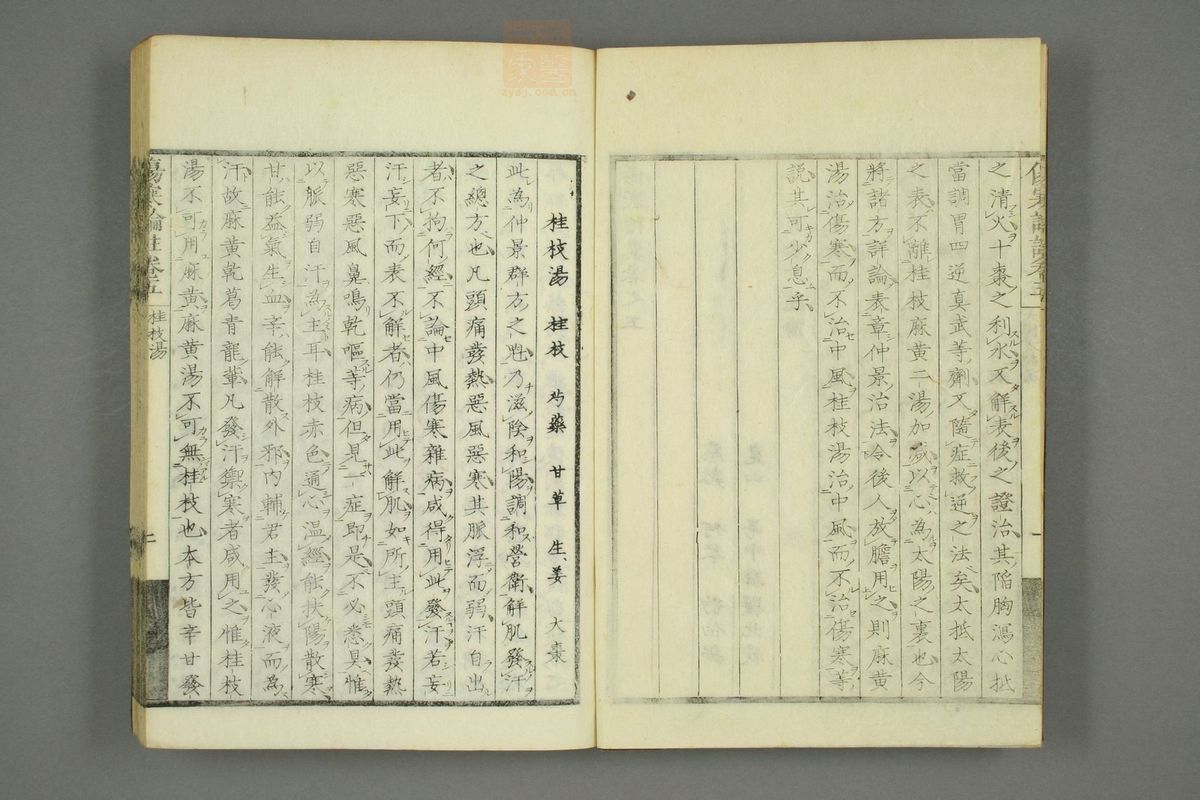 之清火十棗之利水又解表後之證治其陷胸瀉心抵
當調胃四逆真武等劑又隨症救逆之法矣太抵太陽
之表不離桂枝麻黃二湯加減以心為太陽之裏也今
將諸方詳論表章仲景治法令後人放膽用之則麻黃
湯治傷寒而不治中風桂枝湯治中風而不治傷寒等
說其可少息乎
桂枝湯 桂枝 芍藥 甘草 生姜 大棗
此為仲景群方之兠乃滋陰和陽調和營衛解肌發汗
之總方也凡頭痛發熱惡風惡寒其脈浮而弱汗自出
者不拘何經不論中風傷寒雜病咸得用此發汗若妄
汗妄下而表不解者仍當用此解肌如所主頭痛發熱
惡寒惡風鼻鳴乾嘔等病但見一症即是不必悉具惟
以脈弱自汗為主耳桂枝赤色通心溫經能扶陽散寒
甘能益氣生血辛能解散外邪內輔君主發心液而為
汗故麻黃乾葛青龍輩凡發汗禦寒者咸用之惟桂枝
湯不可用麻黃麻黃湯不可無桂枝也本方皆辛甘發
傷寒論註卷五 桂枝湯
zysj.com.cn